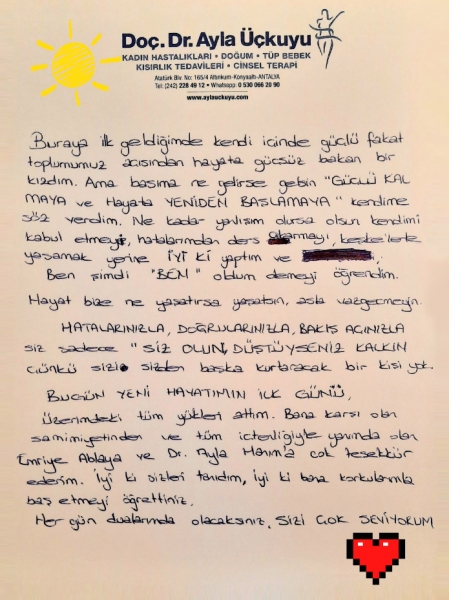 Doç. Dr. Ayla Üçkuyu
KADIN HASTALIKLARI • DOĞUM • TÜP BEBEK
KISIRLIK TEDAVİLERİ • CİNSEL TERAPİ
Atatürk Blv. No: 165/4 Altınkum-Konyaaltı-ANTALYA
Tel: (242) 228 49 12 • Whatsapp: 0 530 066 28 90
www.aylauckuyu.com
Buraya ilk geldiğimde kendi içinde güçlü fakat
toplumumuz açısından hayata güçsüz bakan bir
kızdım. Ama başıma ne gelirse gelsin "GÜÇLÜ KAL
MAYA ve Hayata YENİDEN BAŞLAMAYA" kendime
söz verdim. Ne kadar yanlışım olursa olsun kendimi
kabul etmeyi, hatalarımdan ders çıkarmayı, keşkelerle
yaşamak yerine İYİ Kİ yaptım ve
Ben şimdi "BEN" oldum demeyi öğrendim.
Hayat bize ne yaşatırsa yaşatsın, asla vazgeçmeyin.
HATALARINIZLA, DOĞRULARINIZLA, BAKIŞ AÇINIZLA
siz sadece "SİZ OLUN, DÜŞTÜYSENİZ KALKIN
Çünkü sizi sizden başka kurtaracak bir kişi yok.
BUGÜN YENİ HAYATIMIN İLK GÜNÜ,
Üzerimdeki tüm yükleri attım. Bana karşı olan
samimiyetinden ve tüm içtenliğiyle yanımda olan
Emriye Ablaya ve Dr. Ayla Hanım'a çok teşekkür
ederim. İyi ki sizleri tanıdım, iyi ki bana korkularımla
baş etmeyi öğrettiniz.
Her gün dualarımda olacaksınız. SİZİ ÇOK SEVİYORUM